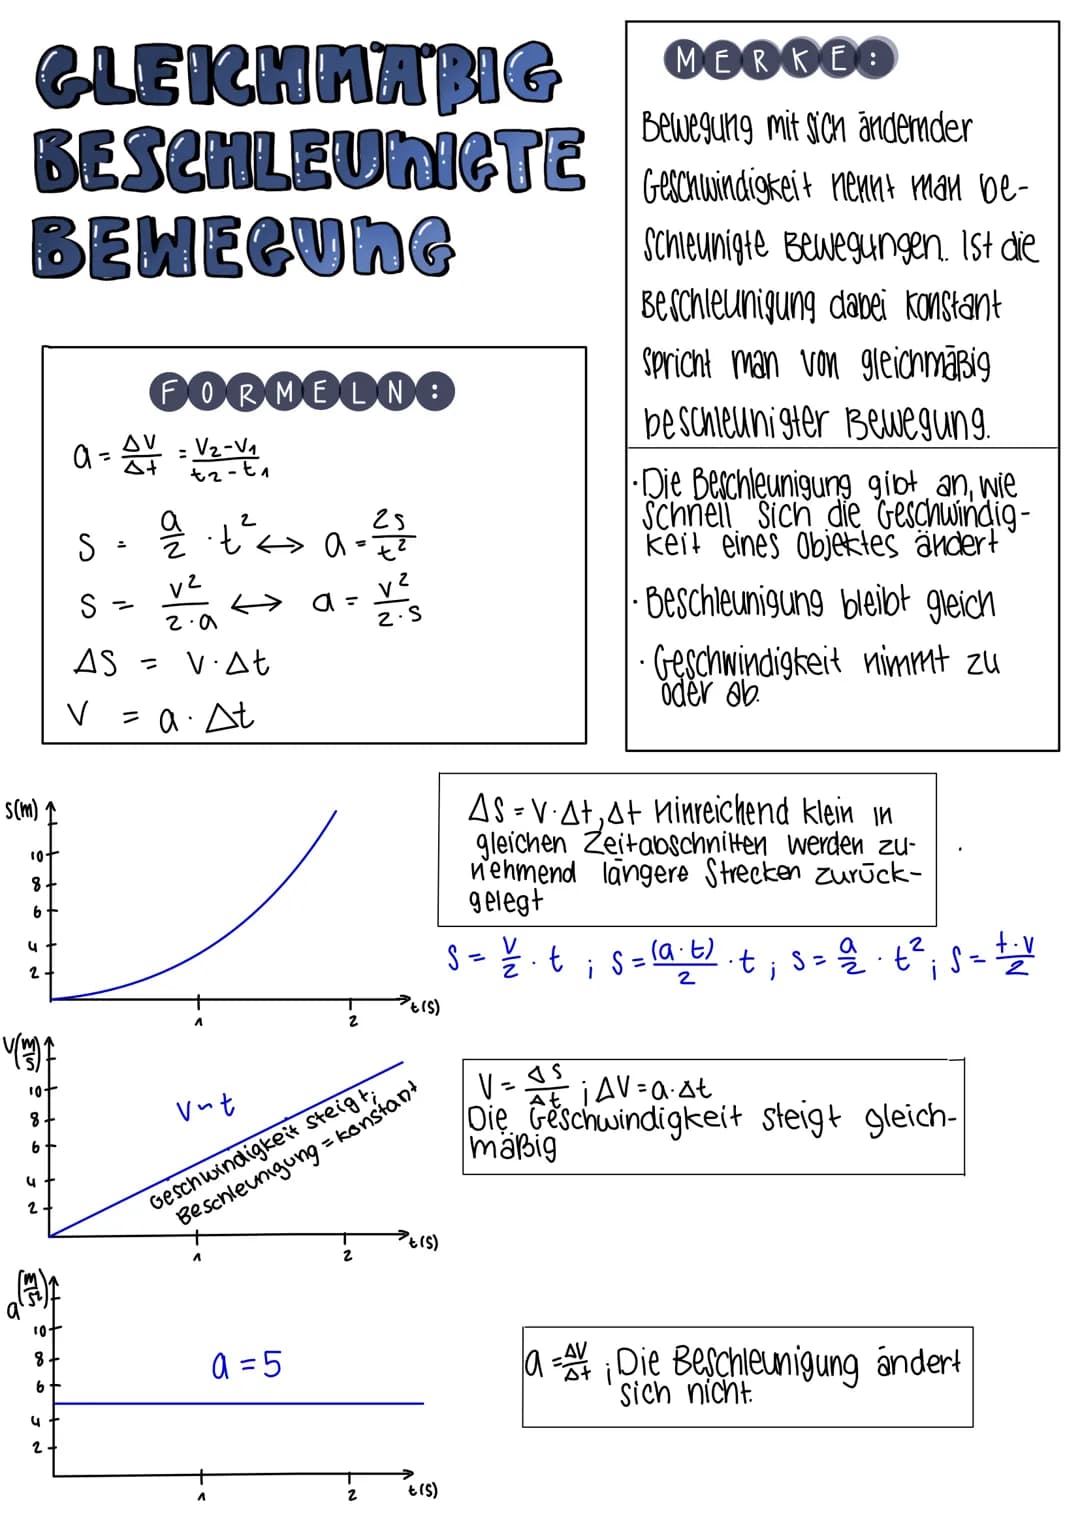 GLEICHMÄßIG
BESCHLEUNIGTE
BEWEGUNG
FORMELN:
a = Δv/Δt = V₂-V₁/t₂-t₁
S = a/2 · t² ↔ a = 2s/t²
S = v²/2·a ↔ a = v²/2·s
ΔS = V·Δt
V = a·Δt
MERKE:
Bewegung mit sich ändernder
Geschwindigkeit nennt man be-
schleunigte Bewegungen. Ist die
Beschleunigung dabei konstant
spricht man von gleichmäßig
beschleunigter Bewegung.
·Die Beschleunigung gibt an, wie
schnell sich die Geschwindig-
keit eines Objektes ändert
·Beschleunigung bleibt gleich
·Geschwindigkeit nimmt zu
oder ab.
S(m)
10
8
6
4
2
1
2
t(s)
ΔS = V·Δt, Δt hinreichend klein in
gleichen Zeitabschnitten werden zu-
nehmend längere Strecken zurück-
gelegt
S = V/2 · t ; S = (a·t)/2 · t ; S = a/2 · t² ; S = t·V/2
V(m/s)
10
8
6
4
2
V~t
Geschwindigkeit steigt;
Beschleunigung = konstant
1
2
t(s)
V = ΔS/Δt ; ΔV = a·Δt
Die Geschwindigkeit steigt gleich-
mäßig
a(m/s²)
10
8
6
4
2
a = 5
1
2
t(s)
a = ΔV/Δt ; Die Beschleunigung ändert
sich nicht.